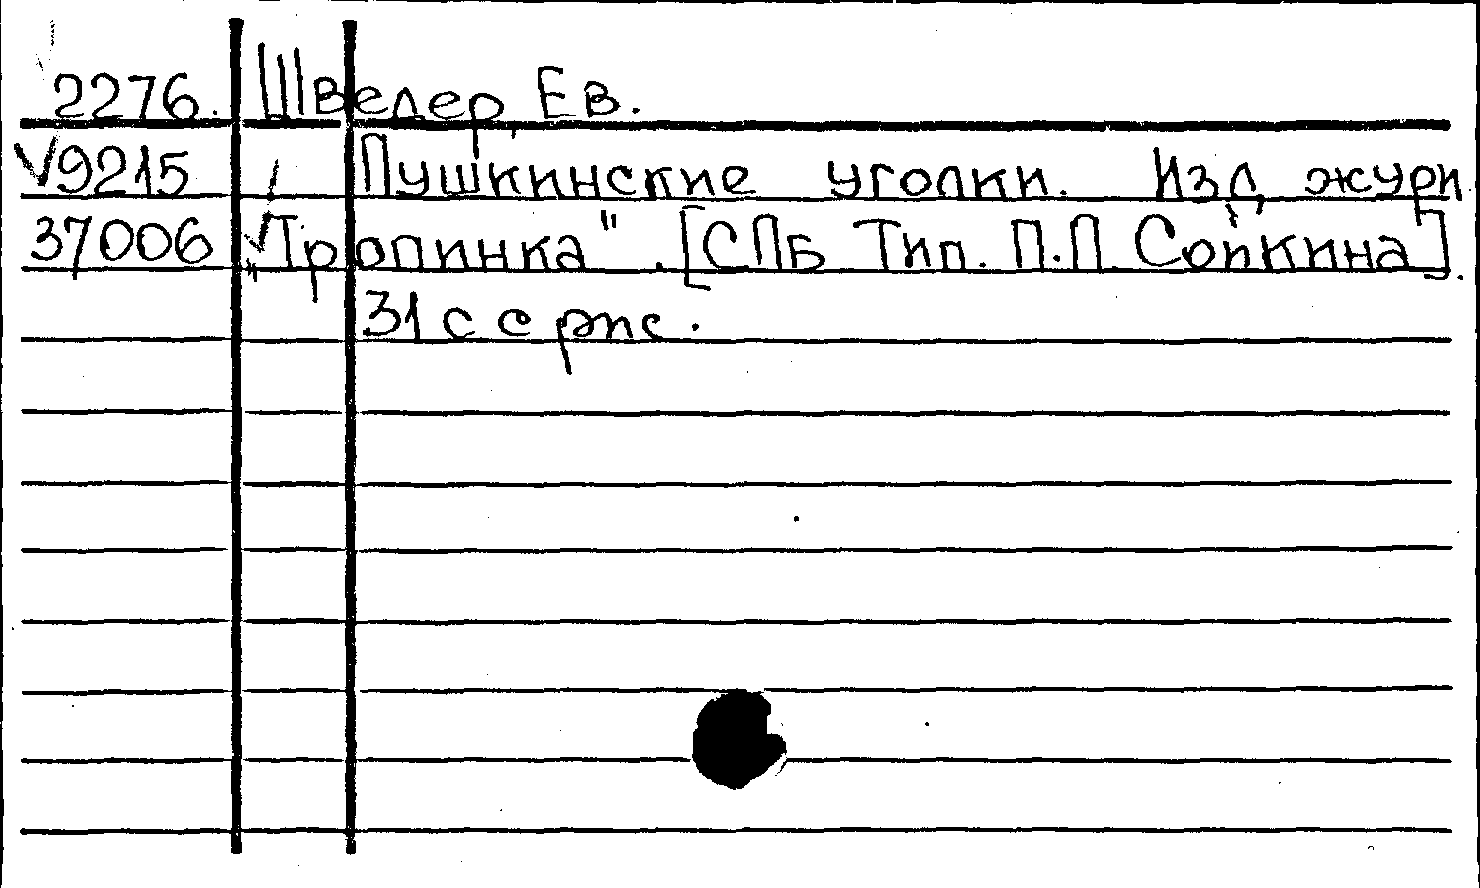 2276. Шведер, Ев.
V9215 Пушкинские уголки. Изд. журн
37006 "Тропинка". [СПБ Тип. П.П. Сойкина].
31 с с рис.